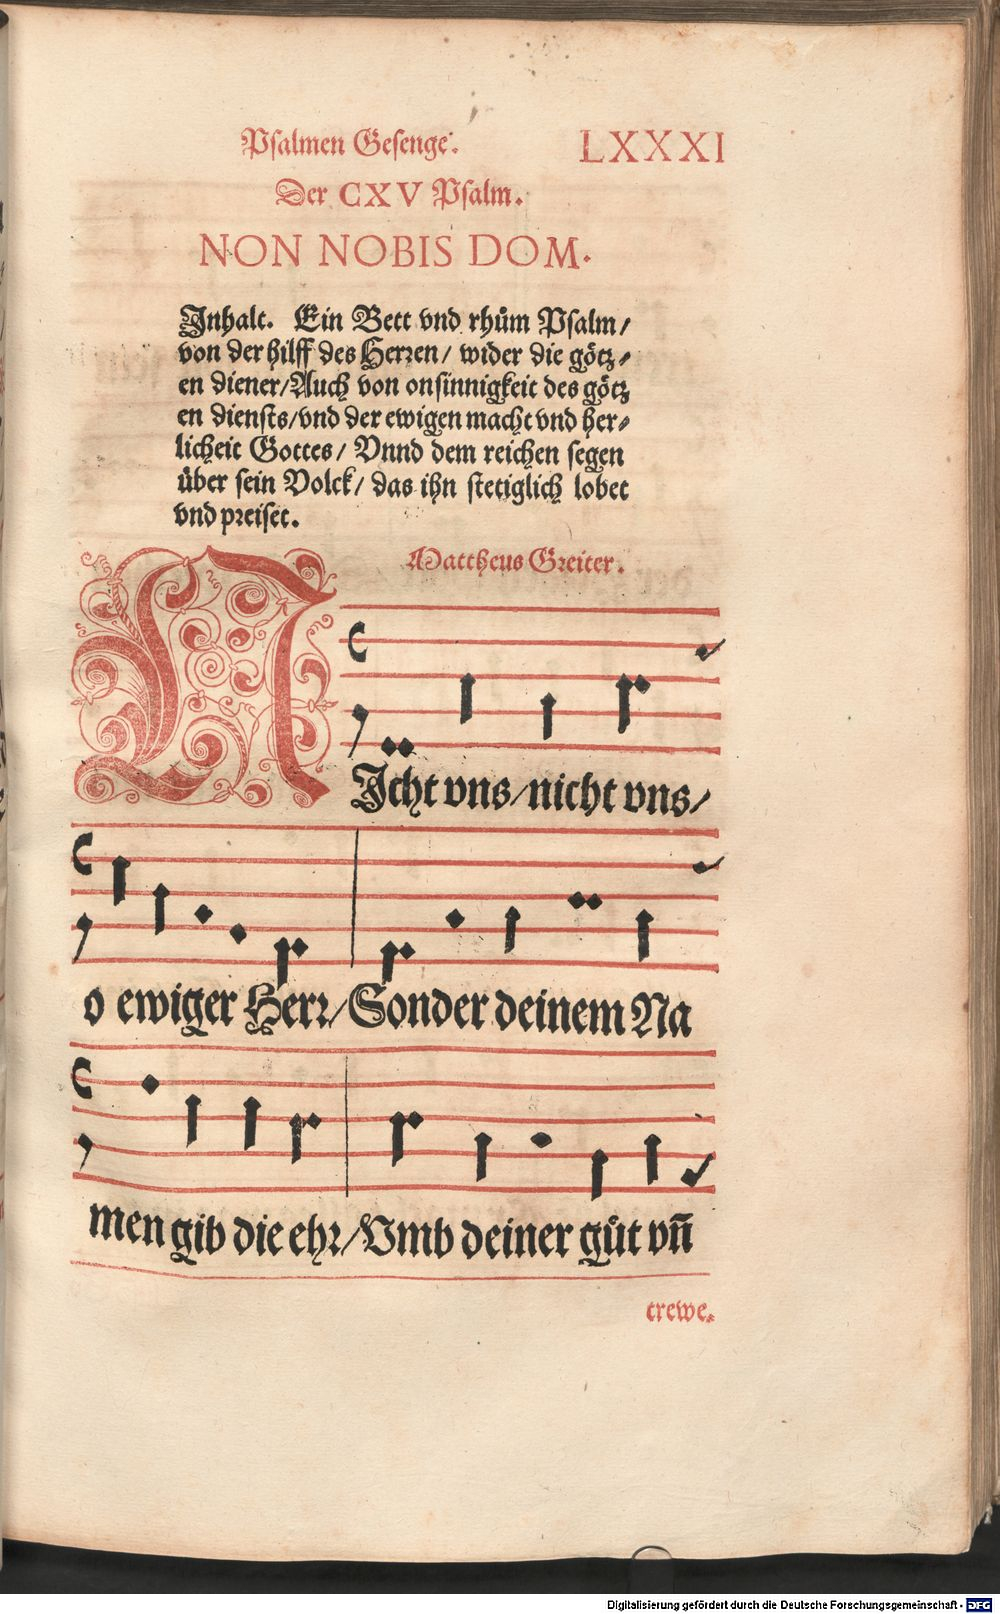 Psalmen Gesenge.
LXXXI
Der CXV Psalm.
NON NOBIS DOM.
Inhalt. Ein Bett vnd rhům Psalm/
von der hilff des Herren/ wider die götz⸗
en diener/Auch von onsinnigkeit des götz
en diensts/vnd der ewigen macht vnd her⸗
licheit Gottes/ Vnnd dem reichen segen
über sein Volck/ das ihn stetiglich lobet
vnd preiset.
Mattheus Greiter.
NIcht vns/nicht vns/
o ewiger Herr/Sonder deinem Na
men gib die ehr/Vmb deiner gůt vn̄
trewe.
Digitalisierung gefördert durch die Deutsche Forschungsgemeinschaft - DFG